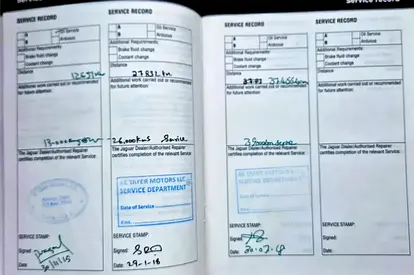 SERVICE RECORD
A
Oil Service
B
Arduous
Additional Requirements:
Brake fluid change
Coolant change
Distance
Additional work carried out or recommended for future attention:
The Jaguar Dealer/Authorised Repairer certifies completion of the relevant Service:
SERVICE STAMP:
Signed:
Date: 30/11/15
SERVICE RECORD
A
Oil Service
B
Arduous
Additional Requirements:
Brake fluid change
Coolant change
Distance
27832 km
Additional work carried out or recommended for future attention:
26,000 kms Service
The Jaguar Dealer/Authorised Repairer certifies completion of the relevant Service:
AL TAYER MOTORS LLC
SERVICE DEPARTMENT
Date of Service
SERVICE STAMP:
Signed:
Date: 29-1-18
SERVICE RECORD
A
Oil Service
B
Arduous
Additional Requirements:
Brake fluid change
Coolant change
Distance
Additional work carried out or recommended for future attention:
The Jaguar Dealer/Authorised Repairer certifies completion of the relevant Service:
SERVICE DEPARTMENT
SERVICE STAMP:
Signed:
Date:
SERVICE RECORD
A
Oil Service
B
Arduous
Additional Requirements:
Brake fluid change
Coolant change
Distance
Additional work carried out or recommended for future attention:
The Jaguar Dealer/Authorised Repairer certifies completion of the relevant Service:
SERVICE STAMP:
Signed:
Date: